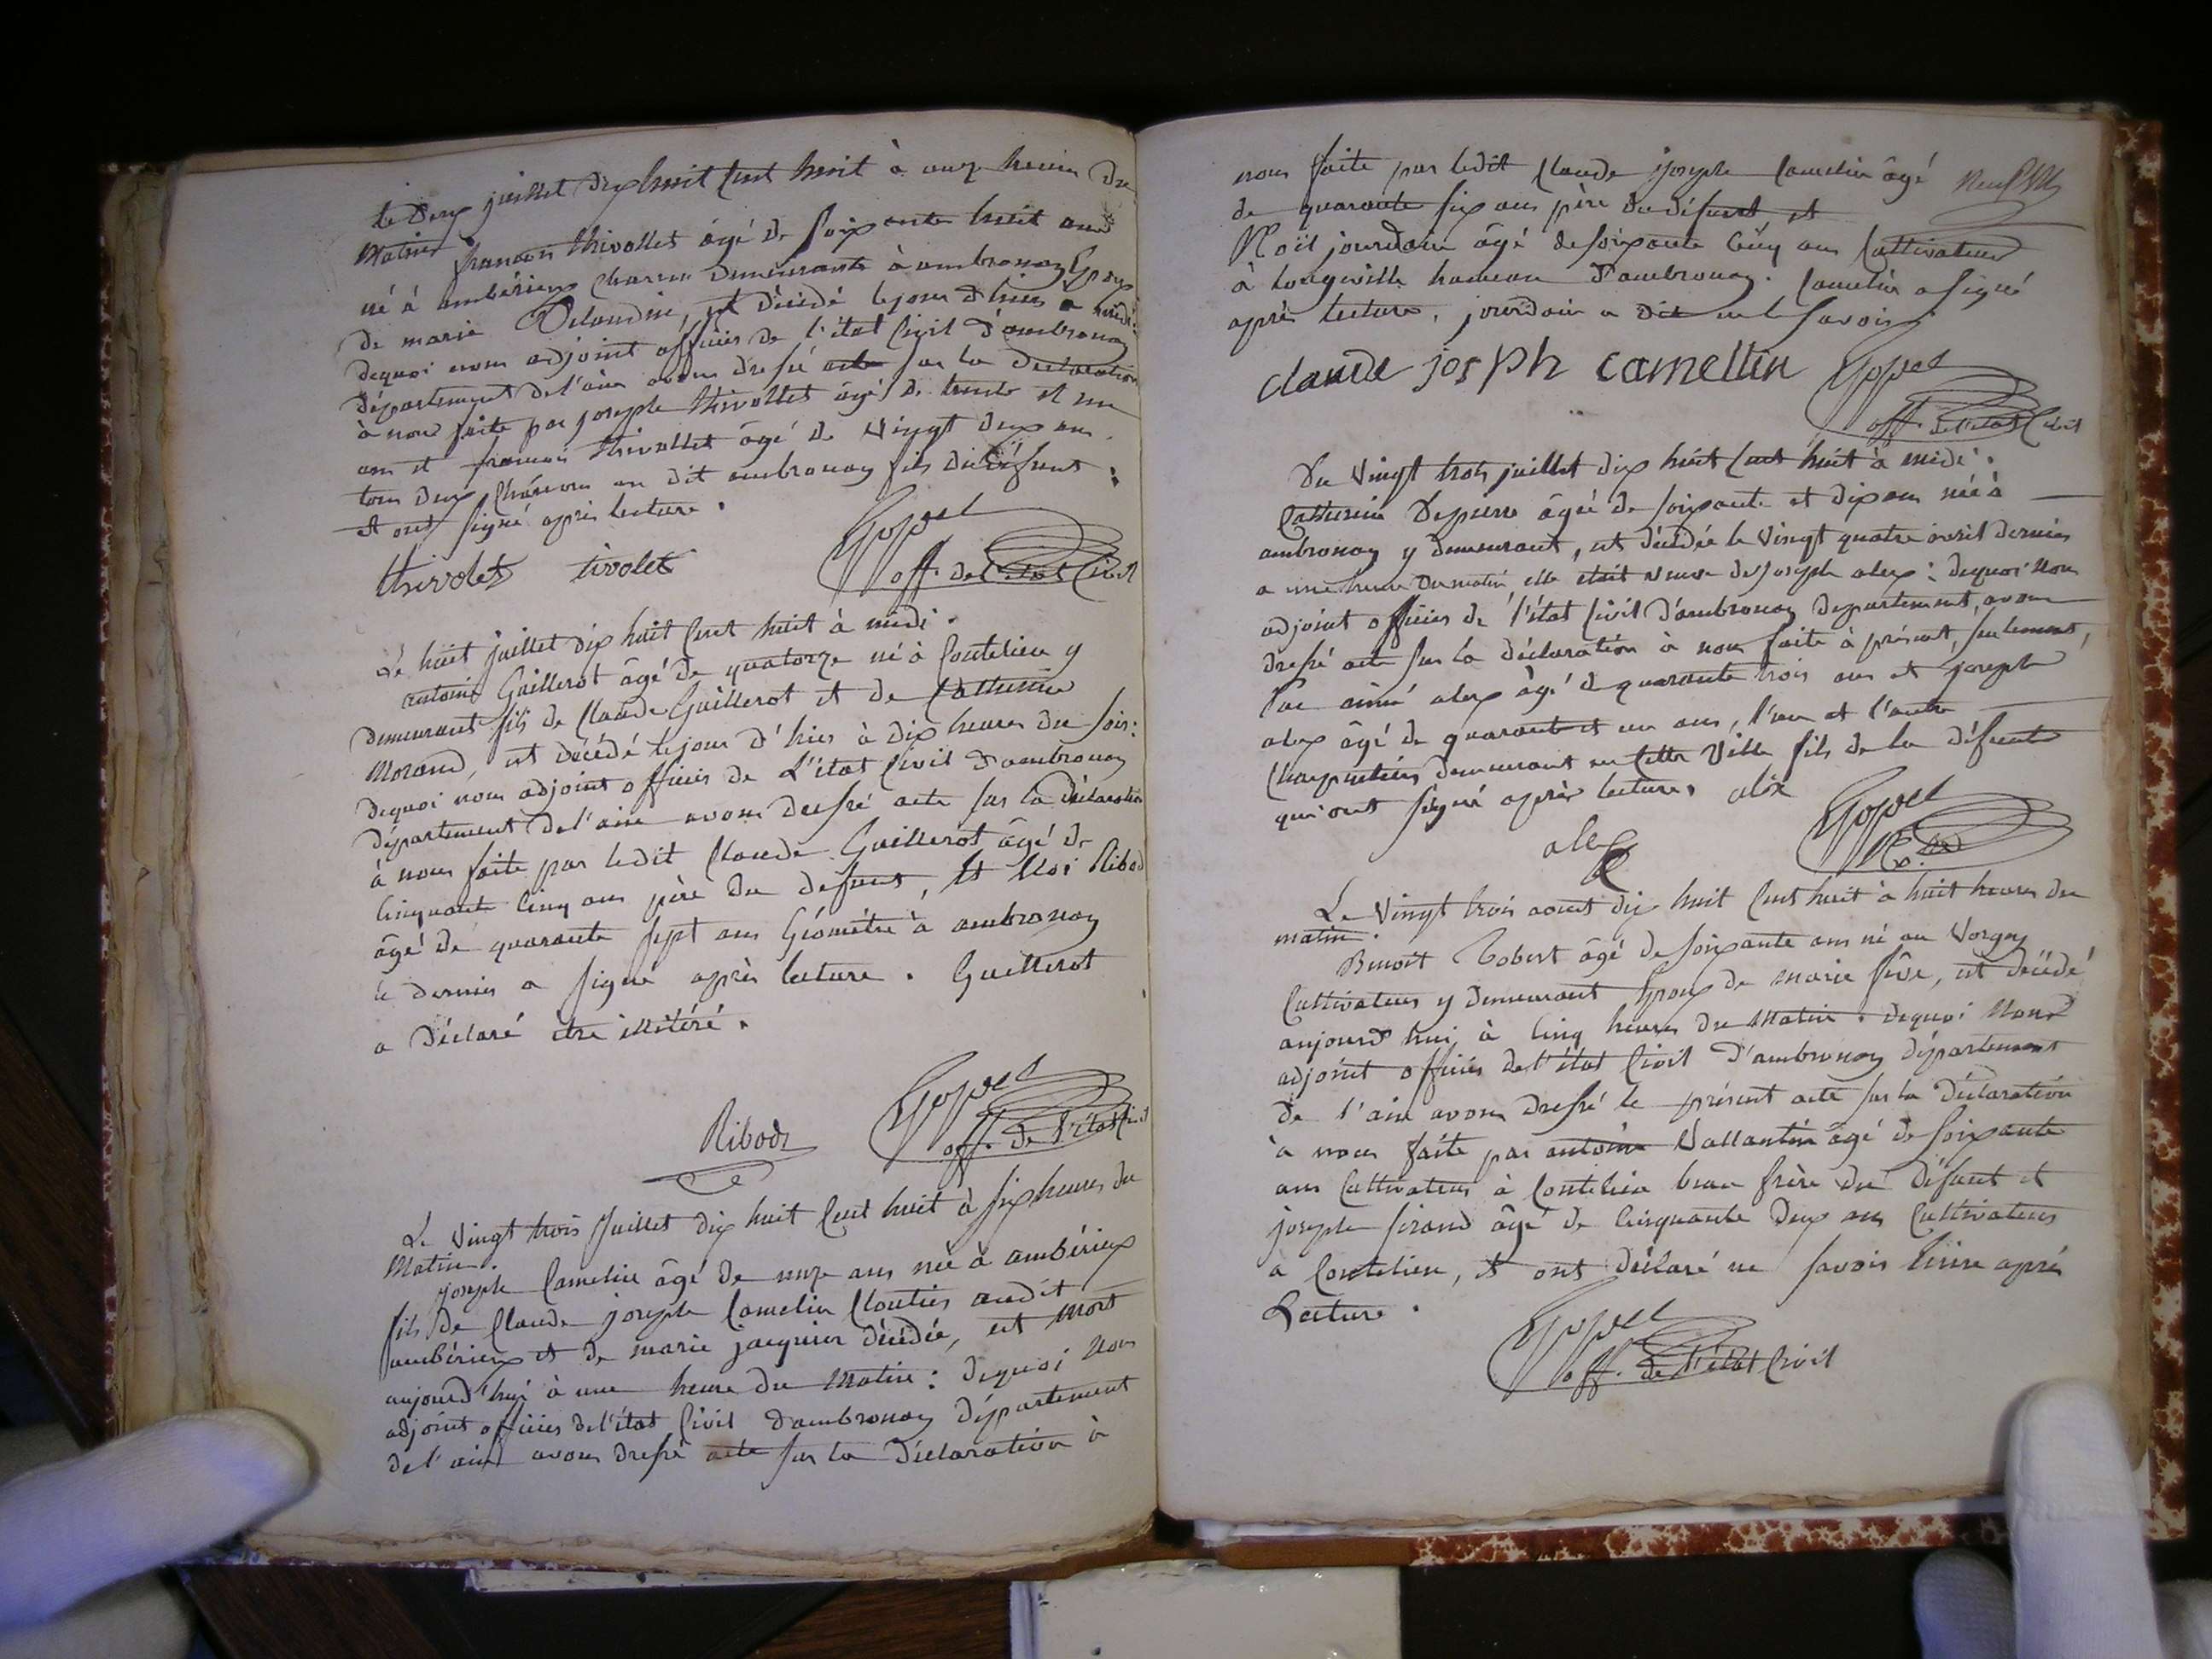 le deux juillet dix huit cent huit à onze heures du
matin françois thivollet âgé de soixante huit ans
né à ambérieux charron demeurante à ambronay Epoux
de marie Delandine, est décédé le jour d'hier a midi:
dequoi nous adjoint officier de l'état Civil d'ambronay
département de l'ain avons dressé acte sur la déclaration
à nous faite par joseph thivollet âgé de trente et un
ans et françois thivollet âgé de vingt deux ans.
tous deux charrons au dit ambronay fils du défunt:
et ont signé après lecture.
thivolet tivolet
off. de l'état Civil
Le huit juillet dix huit cent huit à midi.
antoine Guillerot âgé de quatorze né à Coutelieu y
demeurant fils de Claude Guillerot et de Catherine
Morand, est décédé le jour d'hier à dix heures du soir:
dequoi nous adjoint officier de L'état Civil d'ambronay
département de l'ain avons dressé acte sur la déclaration
à nous faite par ledit Claude Guillerot âgé de
cinquante cinq ans père du defunt, et Ribod
âgé de quarante sept ans Géomètre à ambronay
le dernier a signé après lecture. Guillerot
a déclaré être illitéré.
off. de l'état Civil
Ribod
Le vingt trois Juillet dix huit cent huit à six heures du
Matin.
joseph Camelin âgé de onze ans né à ambérieux
fils de Claude joseph Camelin Cloutier audit
ambérieux et de marie jacquier décédée, est mort
aujourd'hui à une heure du Matin: dequoi nous
adjoint officier de l'état Civil d'ambronay département
de l'ain avons dressé acte sur la déclaration à
nous faite par ledit Claude joseph Camelin âgé
de quarante six ans père du défunt et
Noël jourdain âgé de soixante cinq ans Cultivateur
à Longeville hameau d'ambronay. Camelin a signé
après lecture, jourdain a dit ne le savoir.
claude josph camellin
off. de l'état Civil
Du vingt trois juillet dix huit cent huit à midi.
Catherine Depierre âgée de soixante et dix ans née à
ambronay y demeurant, est décédée le vingt quatre avril dernier
a une heure du matin, elle était veuve de joseph alex: dequoi nous
adjoint officier de l'état Civil d'ambronay département, avons
dressé acte sur la déclaration à nous faite à présent, seulement,
par aimé alex âgé de quarante trois ans et joseph
alex âgé de quarante et un ans, l'un et l'autre
Charpentiers demeurant en cette Ville fils de la défunte
qui ont signé après lecture. alix
alex
Le vingt trois aout dix huit cent huit à huit heures du
matin.
Benoit Robert âgé de soixante ans né au Vorgey
Cultivateur y demeurant Epoux de marie sève, est décédé
aujourd'hui, à cinq heures du Matin. dequoi Nous
adjoint officier de l'état Civil d'ambronay département
de l'ain avons dressé le présent acte sur la déclaration
à nous faite par antoine Vallantin âgé de soixante
ans Cultivateur à Coutelieu beau frère du défunt et
joseph sirand âgé de cinquante deux ans Cultivateur
a Coutelieu, et ont déclaré ne savoir lire après
Lecture.
off. de l'état Civil